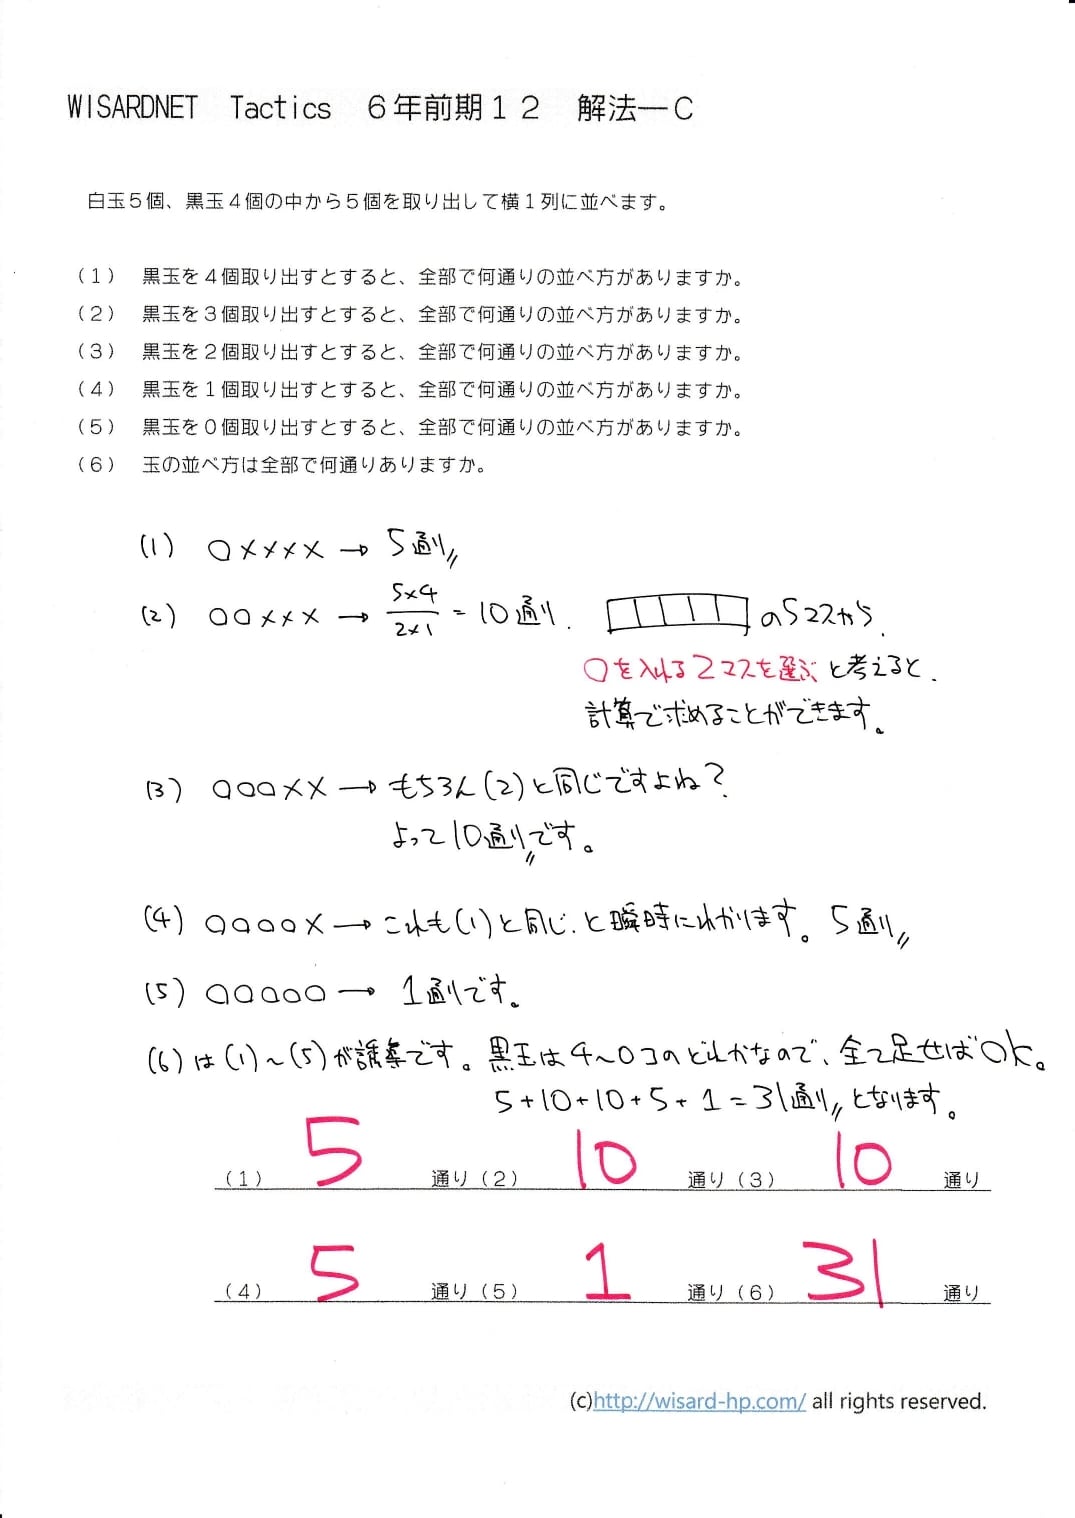 WISARDNET Tactics 6年前期12 解法―C
白玉5個、黒玉4個の中から5個を取り出して横1列に並べます。
(1) 黒玉を4個取り出すとすると、全部で何通りの並べ方がありますか。
(2) 黒玉を3個取り出すとすると、全部で何通りの並べ方がありますか。
(3) 黒玉を2個取り出すとすると、全部で何通りの並べ方がありますか。
(4) 黒玉を1個取り出すとすると、全部で何通りの並べ方がありますか。
(5) 黒玉を0個取り出すとすると、全部で何通りの並べ方がありますか。
(6) 玉の並べ方は全部で何通りありますか。
(1) ○×××× → 5通り〃
(2) ○○××× → 5×4/2×1 = 10通り. の5マスから、
○を入れる2マスを選ぶと考えると、
計算で求めることができます。
(3) ○○○×× → もちろん(2)と同じですよね?
よって10通り〃です。
(4) ○○○○× → これも(1)と同じ、と瞬時にわかります。5通り〃
(5) ○○○○○ → 1通りです。
(6)は(1)~(5)が誘導です。黒玉は4~0コのどれかなので、全て足せばOK。
5+10+10+5+1=31通り〃となります。
(1) 5 通り (2) 10 通り (3) 10 通り
(4) 5 通り (5) 1 通り (6) 31 通り
(c)http://wisard-hp.com/ all rights reserved.